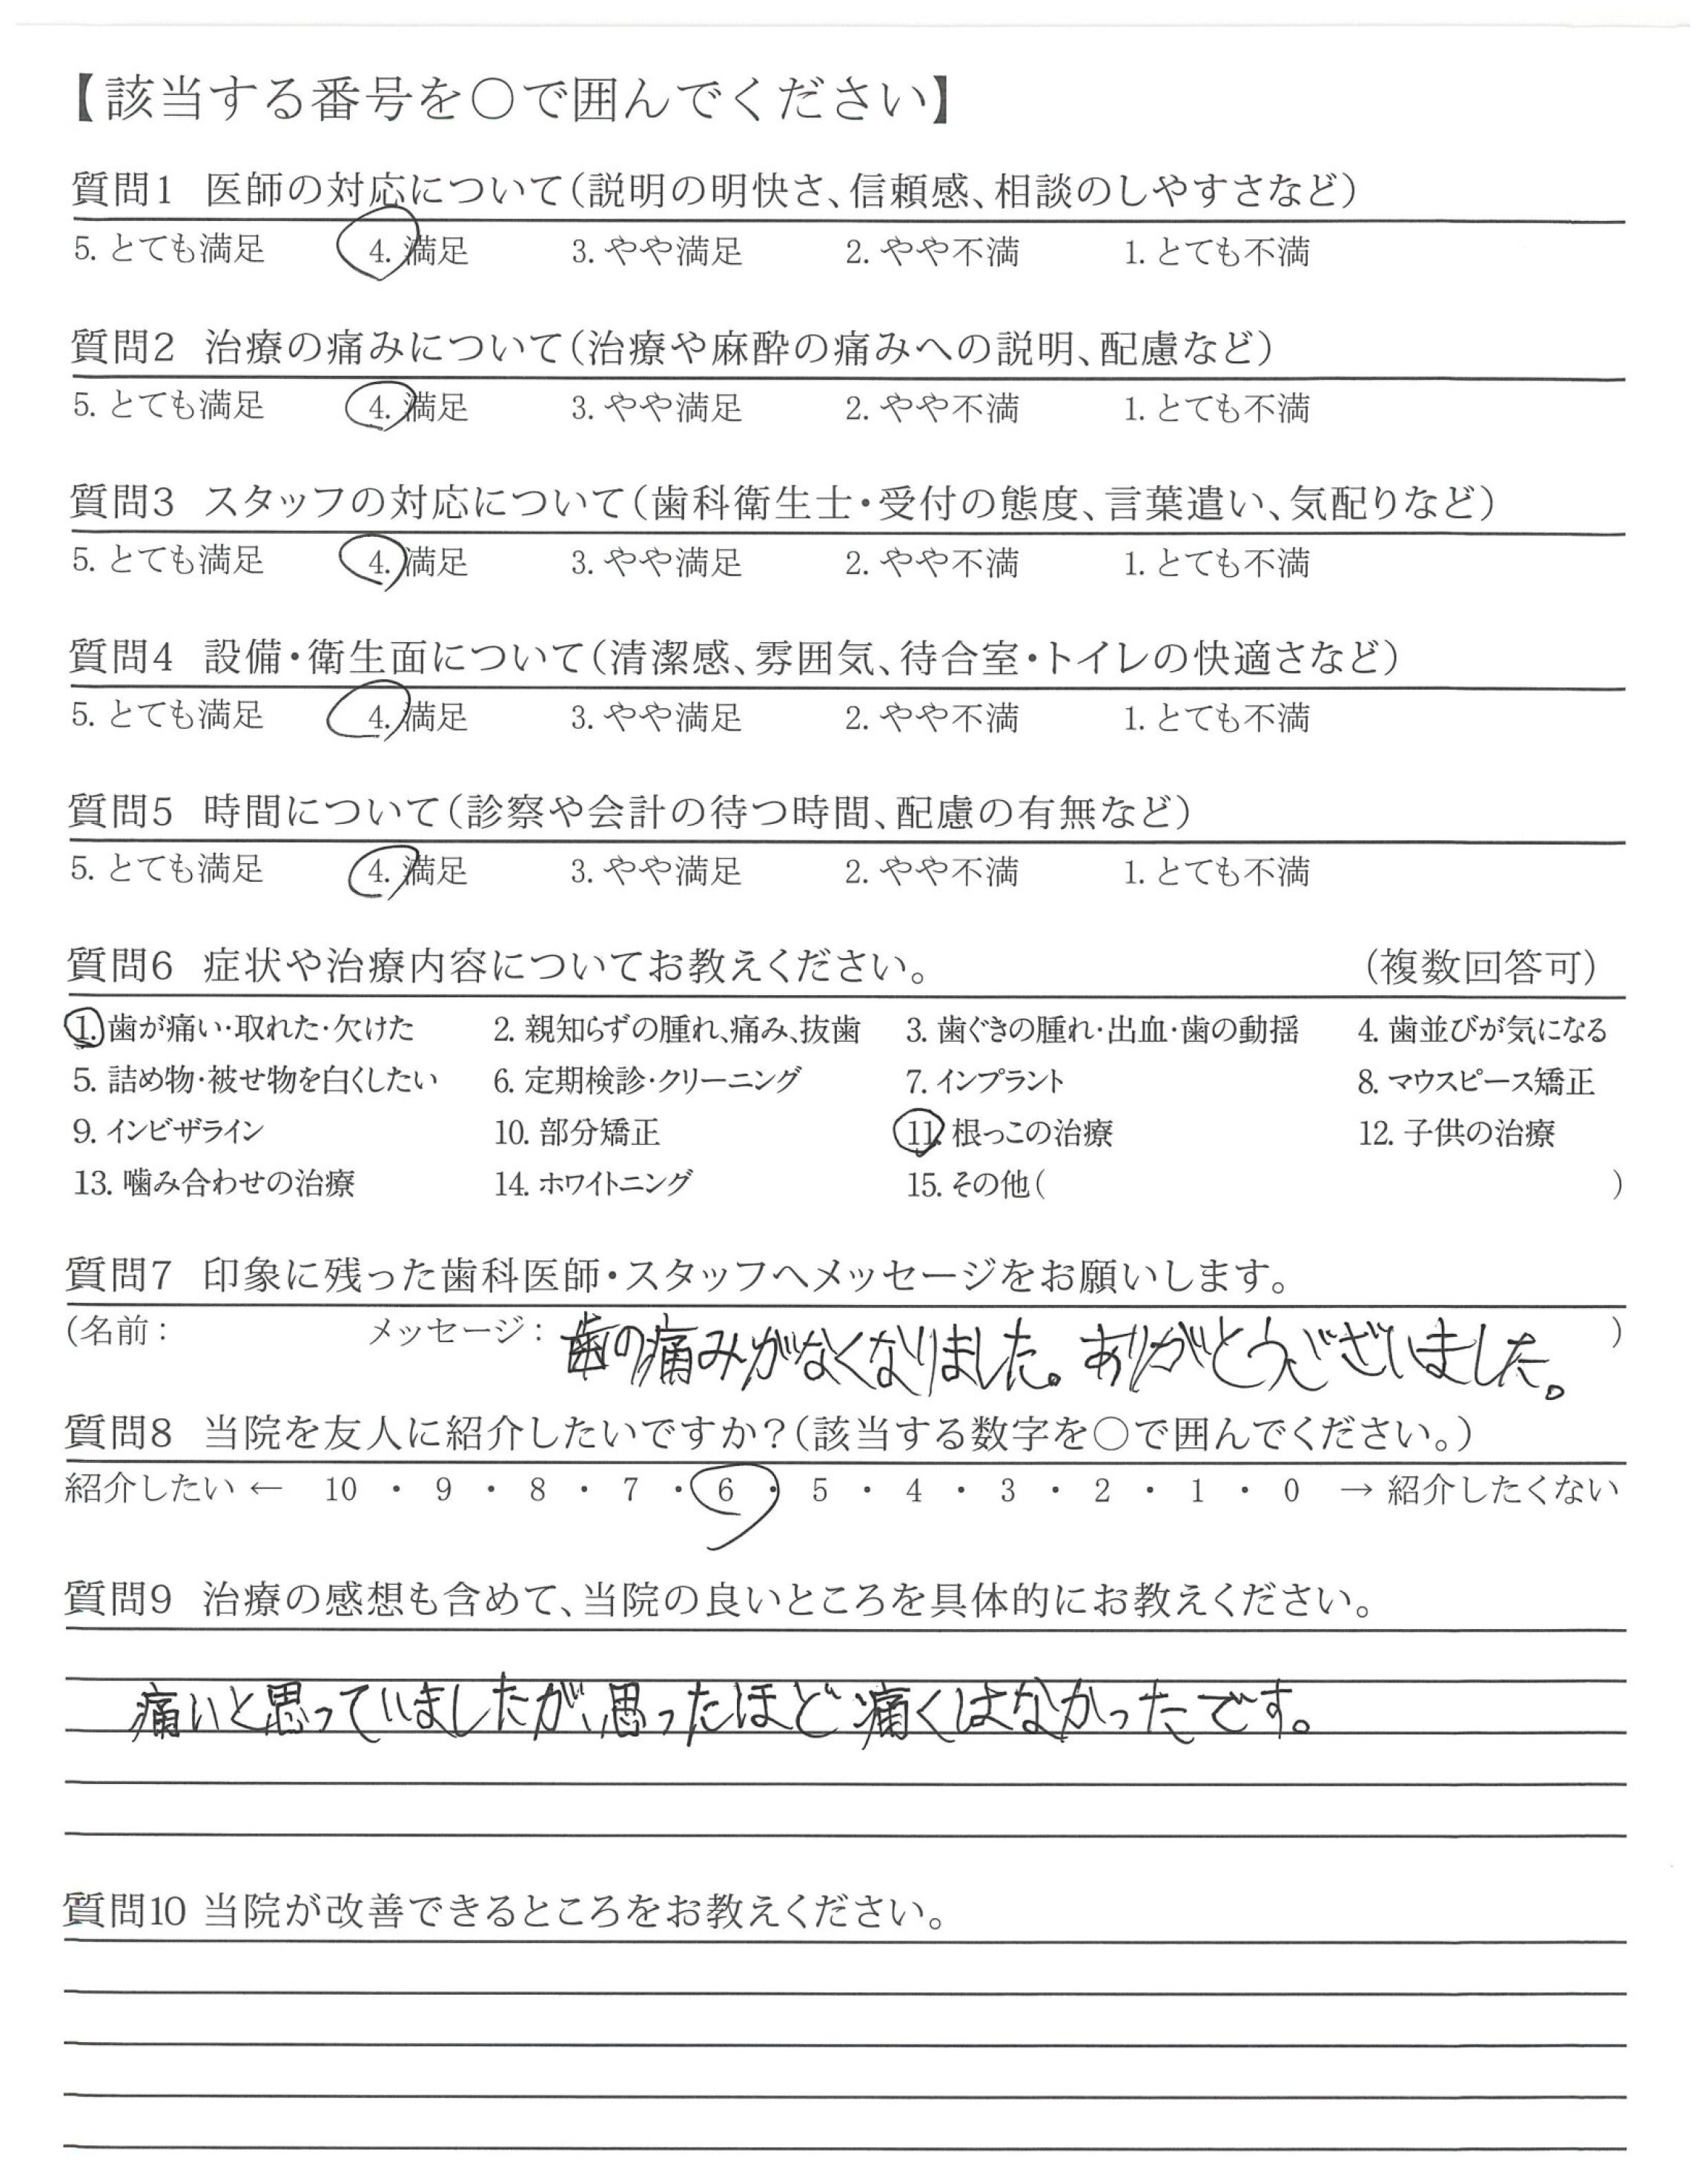 【該当する番号を〇で囲んでください】
質問1 医師の対応について(説明の明快さ、信頼感、相談のしやすさなど)
5. とても満足 4. 満足 3. やや満足 2. やや不満 1. とても不満
質問2 治療の痛みについて(治療や麻酔の痛みへの説明、配慮など)
5. とても満足 4. 満足 3. やや満足 2. やや不満 1. とても不満
質問3 スタッフの対応について(歯科衛生士・受付の態度、言葉遣い、気配りなど)
5. とても満足 4. 満足 3. やや満足 2. やや不満 1. とても不満
質問4 設備・衛生面について(清潔感、雰囲気、待合室・トイレの快適さなど)
5. とても満足 4. 満足 3. やや満足 2. やや不満 1. とても不満
質問5 時間について(診察や会計の待つ時間、配慮の有無など)
5. とても満足 4. 満足 3. やや満足 2. やや不満 1. とても不満
質問6 症状や治療内容についてお教えください。 (複数回答可)
1. 歯が痛い・取れた・欠けた 2. 親知らずの腫れ、痛み、抜歯 3. 歯ぐきの腫れ・出血・歯の動揺 4. 歯並びが気になる
5. 詰め物・被せ物を白くしたい 6. 定期検診・クリーニング 7. インプラント 8. マウスピース矯正
9. インビザライン 10. 部分矯正 11. 根っこの治療 12. 子供の治療
13. 噛み合わせの治療 14. ホワイトニング 15. その他( )
質問7 印象に残った歯科医師・スタッフへメッセージをお願いします。
(名前: メッセージ: 歯の痛みがなくなりました。ありがとうございました。 )
質問8 当院を友人に紹介したいですか?(該当する数字を〇で囲んでください。)
紹介したい ← 10 ・ 9 ・ 8 ・ 7 ・ 6 ・ 5 ・ 4 ・ 3 ・ 2 ・ 1 ・ 0 → 紹介したくない
質問9 治療の感想も含めて、当院の良いところを具体的にお教えください。
痛いと思っていましたが、思ったほど痛くはなかったです。
質問10 当院が改善できるところをお教えください。